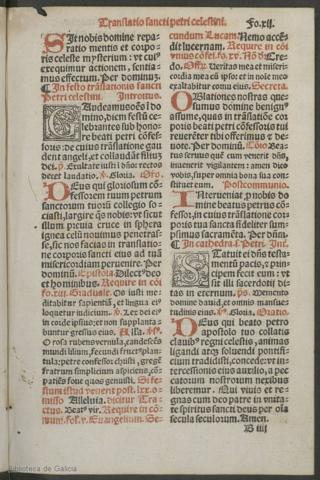 Translatio sancti petri celestini. Fo.xij.
SIt nobis domine repa-
ratio mentis et corpo-
ris celeste mysterium: vt cui⁹
exequimur actionem, senti-
mus effectum. Per dominum.
In festo trāslationis sancti
Petri celestini. Introitus.
GAudeamus oēs ī do
mino, diem festū ce-
lebrantes sub hono-
re beati petri cōfes-
soris: de cuius trāslatione gau
dent angeli, et collaudāt filiuz
dei. Exultate iusti ī dn̄o: rectos
decet laudatio. Gloria. Oro.
DEus qui gloriosum cō-
fessorem tuum petrum
sanctorum tuorū collegio so-
ciasti, largire q̄s nobis: vt sicut
illum precia cruce in sphera
ignea celū nouimus penetras-
se, sic nos
ne corporis sancti eius ad tuā
misericordiam peruenire. Per
dominū. Epistola. Dilect⁹ deo
et hominibus. Require in cōi
fo.xiij. Graduale. Os iusti me
ditabitur sapientiā, et lingua ei⁹
loquetur iudicium. Lex dei ei⁹
in corde ipsius: et non supplanta-
buntur gressus eius. Alla.
O rosa rubens vernula, candescēs
mundi lilium, fecundi fruct⁹ plan-
tula: petre confessor christi, gregē
fratrum simplicium aspiciens, cō-
patiēs foue quos genuisti. Si fe-
stum istud venerit post .lxx. o-
misso Alleluia, dicitur Tra-
ctus. Beat⁹ vir. Require in cō-
muni. fol. v. Euangelium. Se-
cundum Lucam. Nemo accē-
dit lucernam. Require in cōi
vnius cōfes. fo.xv. Nō dr̄ Cre-
do. Offer. Veritas mea et miseri-
cordia mea cū ipso: et in noīe meo
exaltabitur cornu eius. Secreta.
OBlationes nostras que-
sumus domine benign⁹
assume, quas in trāslatiōe cor
poris beati petri cōfessoris tui
reuerēter tibi offerimus et de-
uote. Per dominū. Cōio. Bea-
tus seruus quē cum venerit dn̄s,
inuenerit vigilantem: amen dico
vobis, super omnia bona sua con
stituet eum. Postcommunio.
INterueniat p̄ nobis do
mine beatus petrus cō-
fessor, in cuius trāslatione cor-
poris tua sancta fideliter sum-
psimus sacramēta. Per dn̄m.
In cathedra s. Petri. Int.
STatuit ei dn̄s testa-
mentū pacis, et prin-
cipem fecit eum: vt
sit illi sacerdotij di-
gnitas in eternum. ps. Memento
domine dauid, et omnis mansue-
tudinis eius. Gloria. Oratio.
DEus qui beato petro
apostolo tuo collatis
clauib⁹ regni celestis, animas
ligandi atq̄ soluendi pontifi-
cium tradidisti, concede: vt in-
tercessionis eius auxilio, a pec
catorum nostrorum nexibus
liberemur. Qui viuis et re-
gnas cum deo patre in vnita-
te spiritus sancti deus per oīa
secula seculorum. Amen.
B iiij
Biblioteca de Galicia